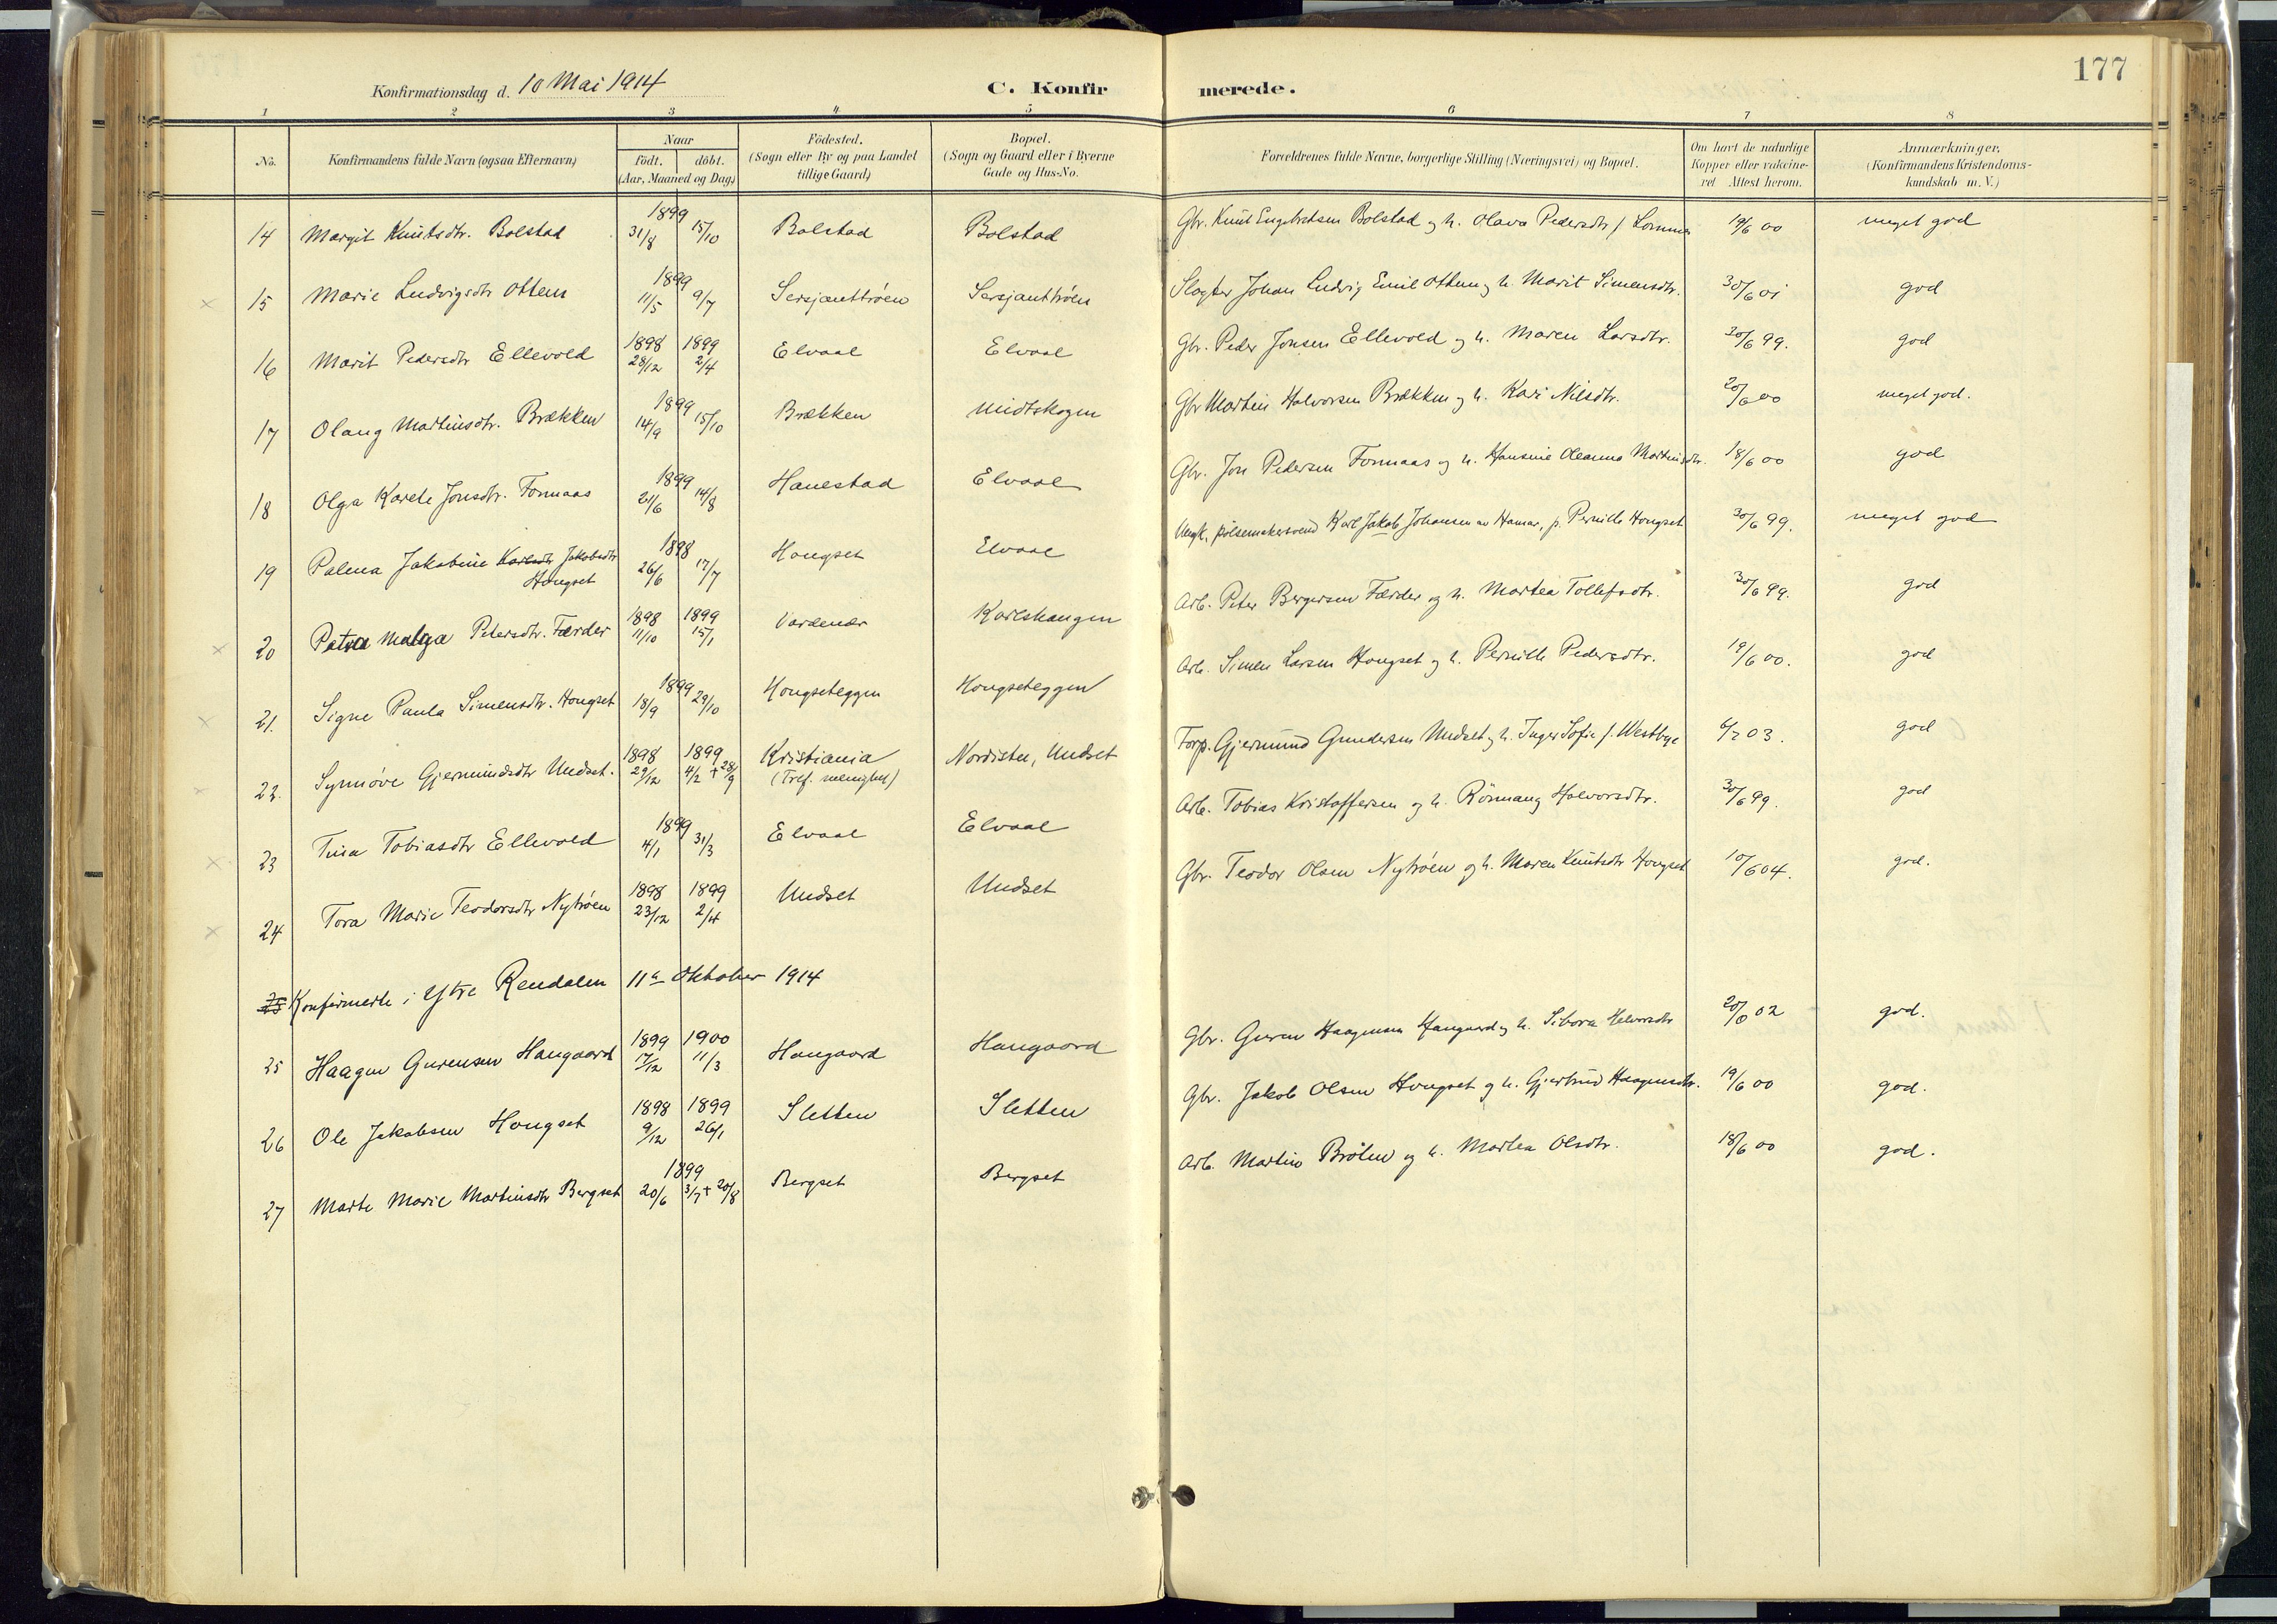 177
Konfirmationsdag d. 10 Mai 1914 C. Konfirmerede.
1 2 3 4 5 6 7 8
No. Konfirmandens fulde Navn (ogsaa Efternavn) Naar födt. döbt. (Aar, Maaned og Dag) Födested. (Sogn eller By og paa Landet tillige Gaard) Bopæl. (Sogn og Gaard eller i Byerne Gade og Hus-No. Forældrenes fulde Navne, borgerlige Stilling (Næringsvei) og Bopæl. Om havt de naturlige Kopper eller vaccineret Attest herom. Anmærkninger. (Konfirmandens Kristendomskundskab m. V.)
14 Margit Knutsdtr. Bolstad 1899 31/8 15/10 Bolstad Bolstad Gbr. Knut Engebretsen Bolstad og h. Olava Pedersdtr f Lomnes 19/6 00 meget god
15 Marie Ludvigsdtr Ottem 1899 11/5 9/7 Sersjanttröen Sersjanttröen Slagter Johan Ludvig Emil Ottem og h. Marit Simensdtr. 30/6 01 god
16 Marit Pedersdtr Ellevold 1898 28/12 1899 2/4 Elvaal Elvaal Gbr. Peder Jonsen Ellevold og h. Maren Larsdtr. 30/6 99. god
17 Olaug Martinsdtr. Brækken 1899 14/9 15/10 Brækken Midtskogen Gbr Martin Halvorsen Brækken og h. Kari Nilsdtr. 20/6 00 meget god.
18 Olga Karete Jonsdtr. Fonnaas 1899 21/6 14/8 Hanestad Elvaal Gbr. Jon Pedersen Fonnaas og h. Hansine Oleanna Martinsdtr. 18/6 00 god
19 Palena Jakobine Karlsdtr Jakobsdtr Hongset 1898 26/6 17/7 Hongset Elvaal Ungk. pölsemakersvend Karl Jakob Johansen av Hamar, p. Pernille Hongset 30/6 99. meget god
20 Petra Malga Petersdtr. Færder 1898 11/10 1899 15/1 Vardenær Karlshaugen Arb. Peter Bergersen Færder og h. Martea Tollefsdtr. 30/6 99. god
21. Signe Paula Simensdtr. Hongset 1899 18/9 29/10 Hongseteggen Hongseteggen Arb. Simen Larsen Hongset og h. Pernille Pedersdtr. 19/6 00. god
22. Synnöve Gjermundsdtr Undset. 1898 29/12 1899 4/2 + 28/9 Kristiania (Tref. menighet) Nordistu, Undset Forp. Gjermund Gundersen Undset og h. Inger Sofie f. Westbye 6/2 03. god
23 Tina Tobiasdtr Ellevold 1899 4/1 31/3 Elvaal Elvaal Arb. Tobias Kristoffersen og h. Rönnaug Halvorsdtr. 30/6 99. god
24 Tora Marie Teodorsdtr Nytröen 1898 23/12 1899 2/4 Undset Undset Gbr. Teodor Olsen Nytröen og h. Maren Knutsdtr Hongset 10/6 04. god.
25 Konfirmerte i Ytre Rendalen 11te Oktober 1914
25 Haagen Gurensen Haugaard 1899 17/12 1900 11/3 Haugaard Haugaard Gbr. Guren Haagensen Haugaard og h. Sibora Halvorsdtr 20/6 02 god.
26 Ole Jakobsen Hongset 1898 9/12 1899 26/1 Sletten Sletten Gbr. Jakob Olsen Hongset og h. Gjertrud Haagensdtr. 19/6 00 god.
27 Marte Marie Martinsdtr Bergset 1899 20/6 3/7 + 20/8 Bergset Bergset Arb. Martin Bröten og h. Martea Olsdtr. 18/6 00 god.